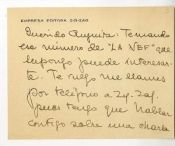 EMPRESA EDITORA ZIG-ZAG
Querido Augusto: Te mando
ese número de "LA NEF" que
supongo puede interesar-
te. Te ruego me llames
por teléfono a Zig-Zag,
pues tengo que hablar
contigo sobre una charla